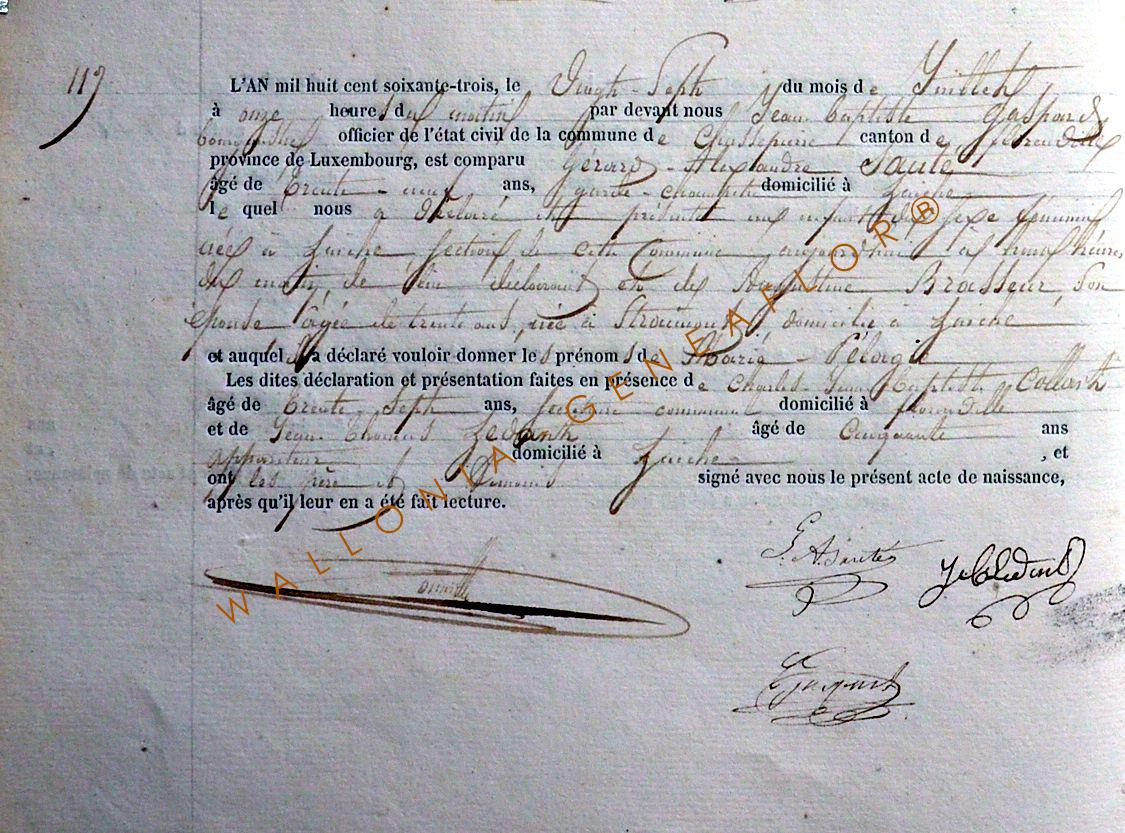 119
L'AN mil huit cent soixante-trois, le Vingt-Sept du mois de Juillet
à onze heures du matin par devant nous Jean Baptiste Gaspard
bourgmestre officier de l'état civil de la commune de Chassepierre canton de florenville
province de Luxembourg, est comparu Gérard-Alexandre
âgé de trente-neuf ans, garde-champêtre domicilié à Laiche
lequel nous a déclaré et présenté un enfant du sexe féminin
née à Laiche section de cette Commune aujourd'hui à heures
du matin, de lui déclarant et de Augustine Brasseur, son
épouse âgée de trente ans, née à domiciliée à Laiche
et auquel il a déclaré vouloir donner les prénoms de Marie-Pélagie
Les dites déclaration et présentation faites en présence de Charles-Jean-Baptiste Collart
âgé de trente-Sept ans, communal domicilié à florenville
et de Jean Thomas âgé de Cinquante ans
appariteur domicilié à Laiche, et
ont les père et témoins signé avec nous le présent acte de naissance,
après qu'il leur en a été fait lecture.
WALLONIA GENEAFLOR®